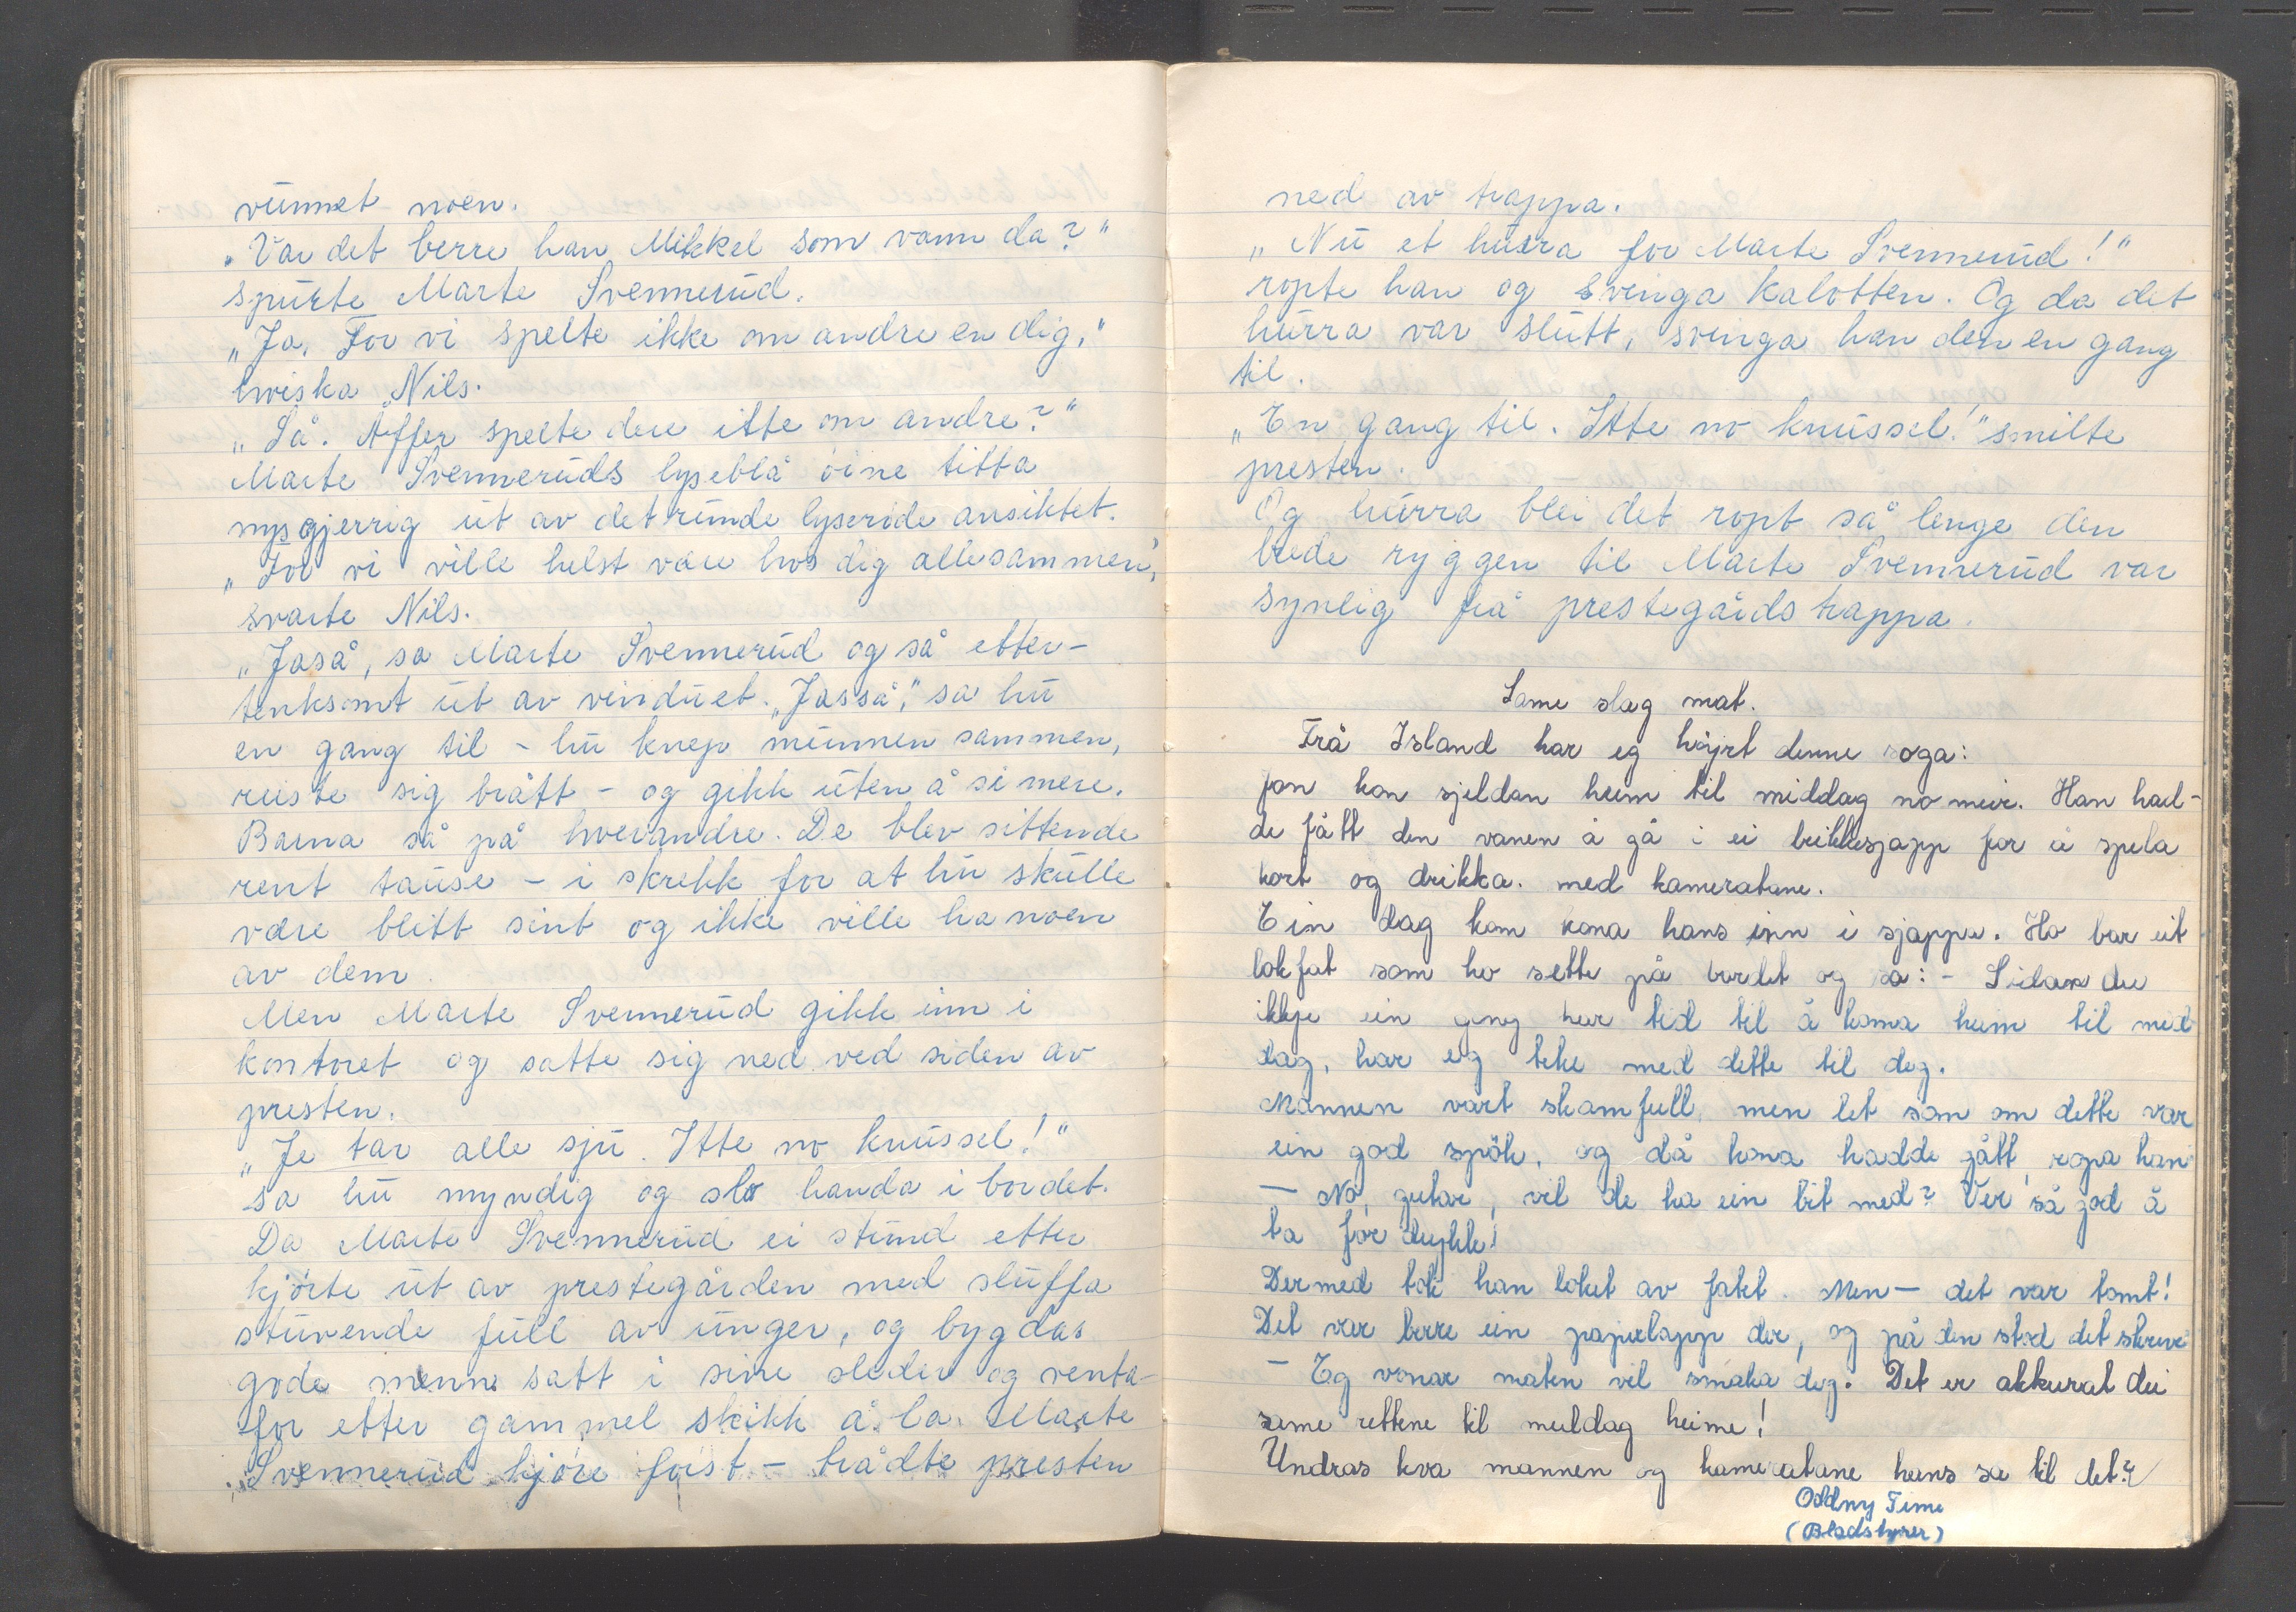 vunnet noen.
„Var det berre han Mikkel som vann da?"
spurte Marte Svennerud.
„Ja, For vi spelte ikke om andre en dig,"
hviska Nils.
„Så. Åffer spelte dere itte om andre?"
Marte Svenneruds lyseblå öine titta
nysgjerrig ut av det runde lyseröde ansiktet.
„For vi ville helst være hos dig allesammen",
svarte Nils.
„Jaså, sa Marte Svennerud og så etter-
tenksomt ut av vinduet. „Jasså," sa hu
en gang til - hu knep munnen sammen,
reiste sig brått - og gikk uten å si mere.
Barna så på hverandre. De blev sittende
rent tause - i skrekk for at hu skulle
være blitt sint og ikke ville ha noen
av dem.
Men Marte Svennerud gikk inn i
kontoret og satte sig ned ved siden av
presten.
„Je tar alle sju. Itte no knussel!"
sa hu myndig og slo handa i bordet.
Da Marte Svennerud ei stund etter
kjörte ut av prestegården med sluffa
stuvende full av unger, og bygdas
gode menn satt i sine sleder og venta-
for etter gammel skikk å la Marte
Svennerud kjöre först - trådte presten
ned av trappa.
„Nu et hurra for Marte Svennerud!"
ropte han og svinga kalotten. Og da det
hurra var slutt, svinga han den en gang
til.
„En gang til. Itte no knussel!" smilte
presten.
Og hurra blei det ropt så lenge den
brede ryggen til Marte Svennerud var
synlig frå prestegårdstrappa.
Same slag mat.
Frå Island har eg höyrt denne soga:
Jon kom sjeldan heim til middag no meir. Han had-
de fått den vanen å gå i ei drikkesjapp for å spela
kort og drikka. med kameratane.
Ein dag kom kona hans inn i sjappa. Ho bar eit
lokfat som ho sette på bordet og sa: - Sidan du
ikkje ein gong har tid til å koma heim til mid
dag, har eg teke med dette til deg.
Mannen vart skamfull, men let som om dette var
ein god spök, og då kona hadde gått, ropa han
- No, gutar, vil de ha ein bit med? Ver så god å
ta for dykk!
Dermed tok han loket av fatet. Men - det var tomt!
Det var berre ein papirlapp der, og på den stod det skreve
- Eg vonar maten vil smaka deg. Det er akkurat dei
same rettene til middag heime!
Undras kva mannen og kameratane hans sa til det?
Oddny Time
(Bladstyrer)